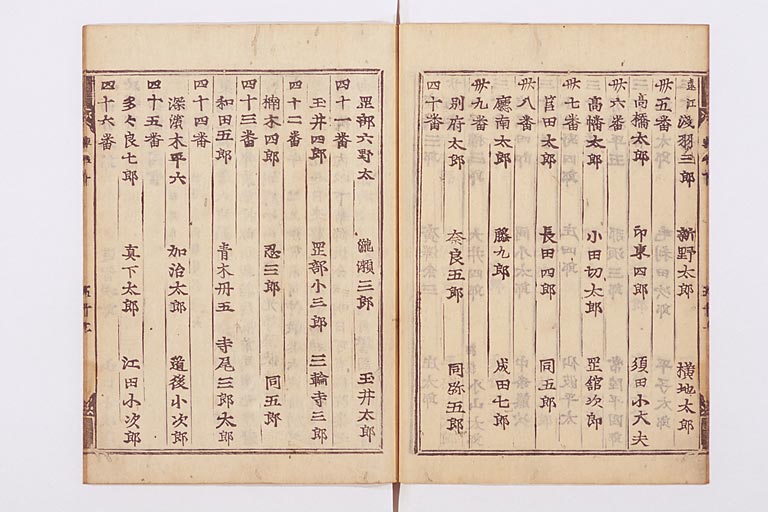 遠江浅羽三郎 新野太郎 横地太郎
卅五番
高橋太郎 印東四郎 須田小大夫
卅六番
高幡太郎 小田切太郎 罡舘次郎
卅七番
菅田太郎 長田四郎 同五郎
卅八番
廳南太郎 藤九郎 成田七郎
卅九番
別府太郎 奈良五郎 同弥五郎
四十番
罡部六野太 瀧瀬三郎 玉井太郎
四十一番
玉井四郎 罡部小三郎 三輪寺三郎
四十二番
楠本四郎 忍三郎 同五郎
四十三番
和田五郎 青木丹五 寺尾三郎太郎
四十四番
深濱木平六 加治太郎 道後小次郎
四十五番
多々良七郎 真下太郎 江田小次郎
四十六番